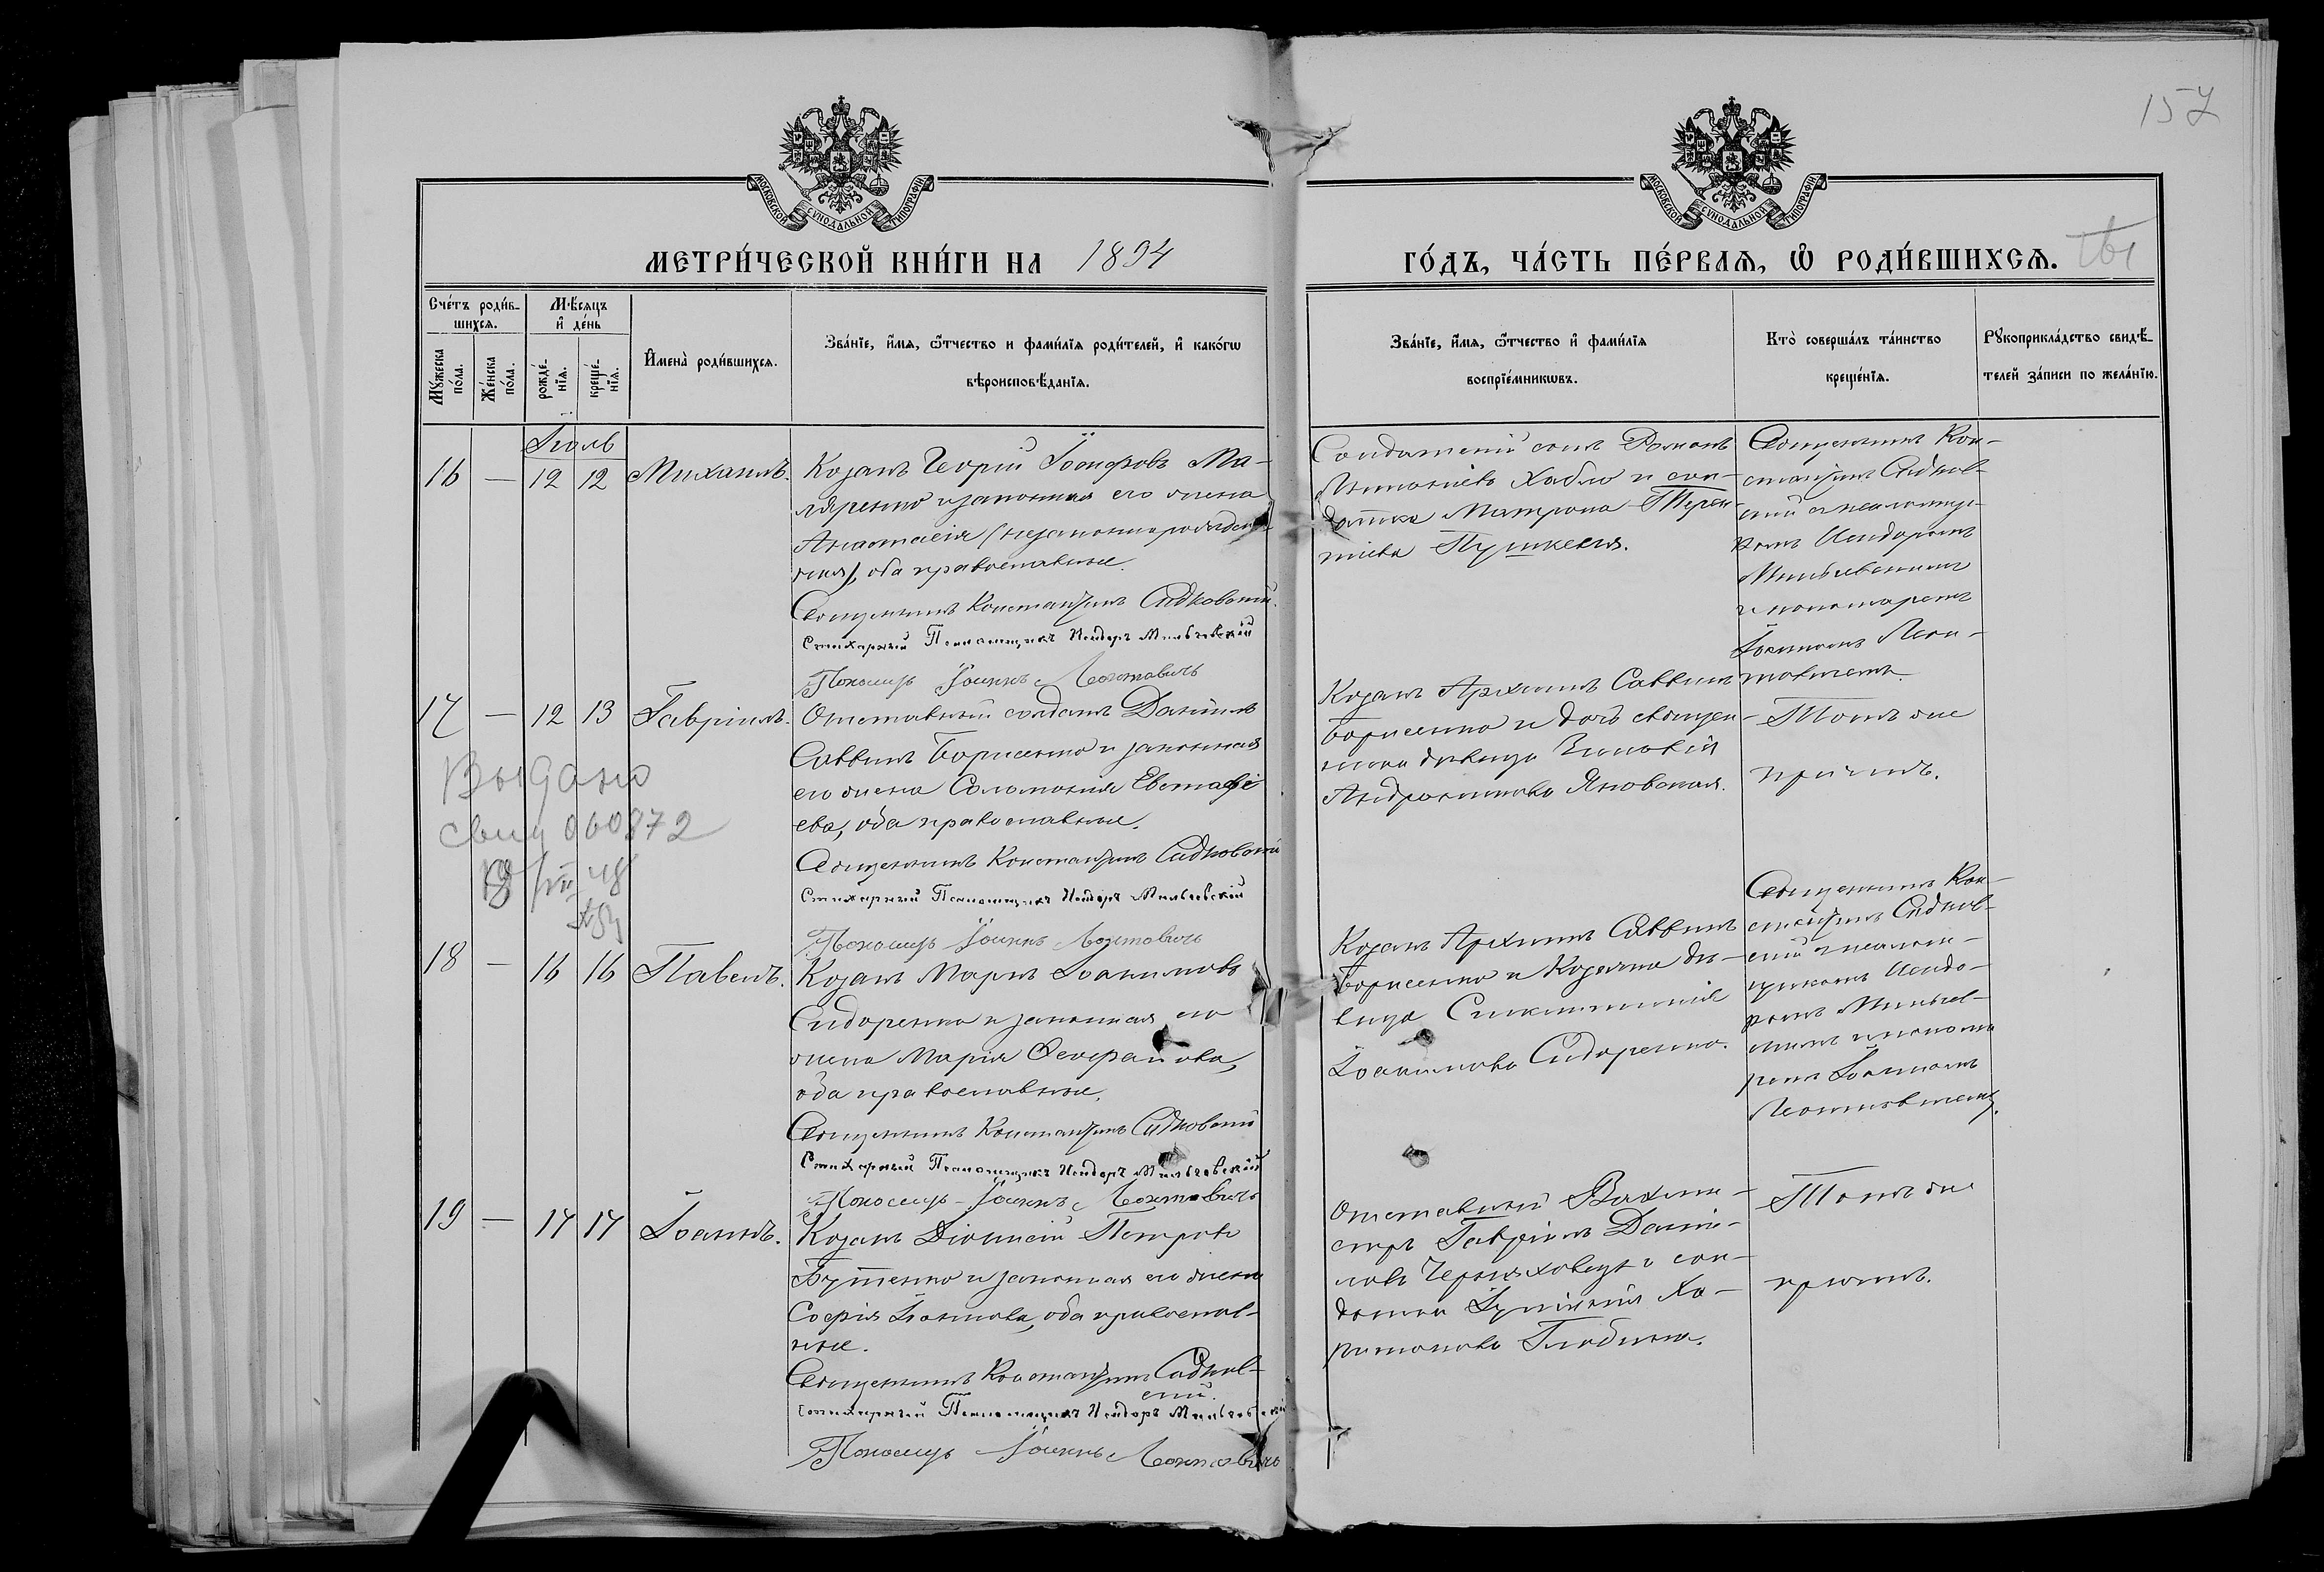 157
МОСКОВСКОЙ СѴНОДАЛЬНОЙ ТИПОГРАФІИ
МОСКОВСКОЙ СѴНОДАЛЬНОЙ ТИПОГРАФІИ
МЕТРИ́ЧЕСКОЙ КНИ́ГИ НА 1894
ГО́ДЪ, ЧА́СТЬ ПЕ́РВАѦ, Ѡ РОДИ́ВШИХСѦ.
Сче́тъ роди́в-
шихсѧ.
Мꙋжеска
по́ла.
Же́нска
по́ла.
Мѣ́сѧцъ
и҆ де́нь
рожде́-
нїѧ.
креще́-
нїѧ.
И҆мена̀ роди́вшихсѧ.
Зва́нїе, и҆́мѧ, ѻ҆́тчество и фами́лїѧ роди́телей, и҆ како́гѡ
вѣроисповѣ́данїѧ.
Зва́нїе, и҆́мѧ, ѻ҆́тчество и҆ фами́лїѧ
воспрїе́мникѡвъ.
Кто̀ соверша́лъ та́инство
креще́нїѧ.
Рꙋкоприкла́дство свидѣ́-
телей за́писи по жела́нїю.
Іюль
16 — 12 12 Михаилъ.
Козакъ Георгій Іосифовъ Ма-
ляренко и законная его жена
Анастасія (незаконнорожден-
ная), оба православные.
Священникъ Константинъ Сидковскій.
Стихарный Псаломщикъ Исидоръ Мильчевскій
Пономарь Іоаннъ Леонтовичъ
Солдатскій сынъ Романъ
Антоніевъ Хабло и сол-
датка Матрона Терен-
тіева
Священникъ Кон-
стантинъ Сидков-
скій и псаломщи-
комъ Исидоромъ
Мильчевскимъ
и пономаремъ
Іоанномъ Леон-
товичемъ.
17 — 12 13 Гавріилъ.
Отставный солдатъ Даніилъ
Саввинъ Борисенко и законная
его жена Соломонія Евстафі-
ева, оба православные.
Священникъ Константинъ Сидковскій
Стихарный Псаломщикъ Исидоръ Мильчевскій
Пономарь Іоаннъ Леонтовичъ
Козакъ Архипъ Саввинъ
Борисенко и дочь священ-
ника дѣвица Зиновія
Андроникова Яновская.
Тотъ же
причтъ.
Выдано
свид 060872
18 — 16 16 Павелъ.
Козакъ Маркъ Іоакимовъ
Сидоренко и законная его
жена Марія Ѳеофанова,
оба православные.
Священникъ Константинъ Сидковскій
Стихарный Псаломщикъ Исидоръ Мильчевскій
Пономарь Іоаннъ Леонтовичъ
Козакъ Архипъ Саввинъ
Борисенко и Козачка дѣ-
вица
Іоакимова Сидоренко.
Священникъ Кон-
стантинъ Сидков-
скій и псалом-
щикомъ Исидо-
ромъ Мильчев-
скимъ и понома-
ремъ Іоанномъ
Леонтовичемъ.
19 — 17 17 Іоаннъ.
Козакъ Діонисій Петровъ
Бутенко и законная его жена
Софія Іоаннова, оба православ-
ные.
Священникъ Константинъ Сидков-
скій.
Стихарный Псаломщикъ Исидоръ Мильчевскій
Пономарь Іоаннъ Леонтовичъ
Отставный Вахми-
стръ Гавріилъ Дані-
ловъ Черняховецъ и сол-
датка Іуліанія Ха-
ритонова
Тотъ же
причтъ.